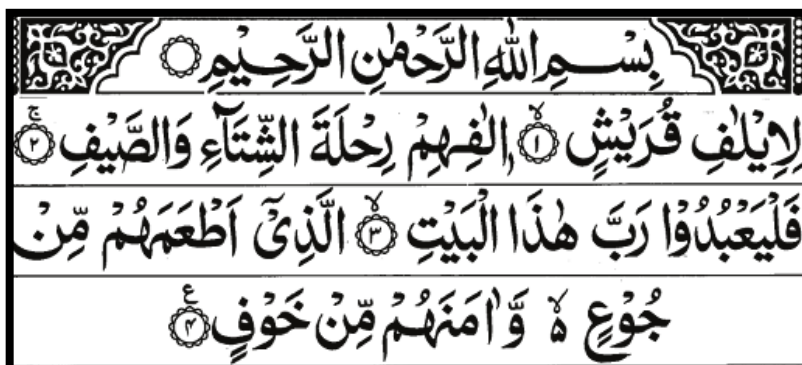 بِسْمِ اللهِ الرَّحْمٰنِ الرَّحِيْمِ ۝
لِاِيْلٰفِ قُرَيْشٍ ۙ﴿۱﴾ اٖلٰفِهِمْ رِحْلَةَ الشِّتَآءِ وَالصَّيْفِ ۚ﴿۲﴾
فَلْيَعْبُدُوْا رَبَّ هٰذَا الْبَيْتِ ۙ﴿۳﴾ الَّذِيْۤ اَطْعَمَهُمْ مِّنْ
جُوْعٍ ۙ۬ وَّاٰمَنَهُمْ مِّنْ خَوْفٍ ﴿۴﴾ ع